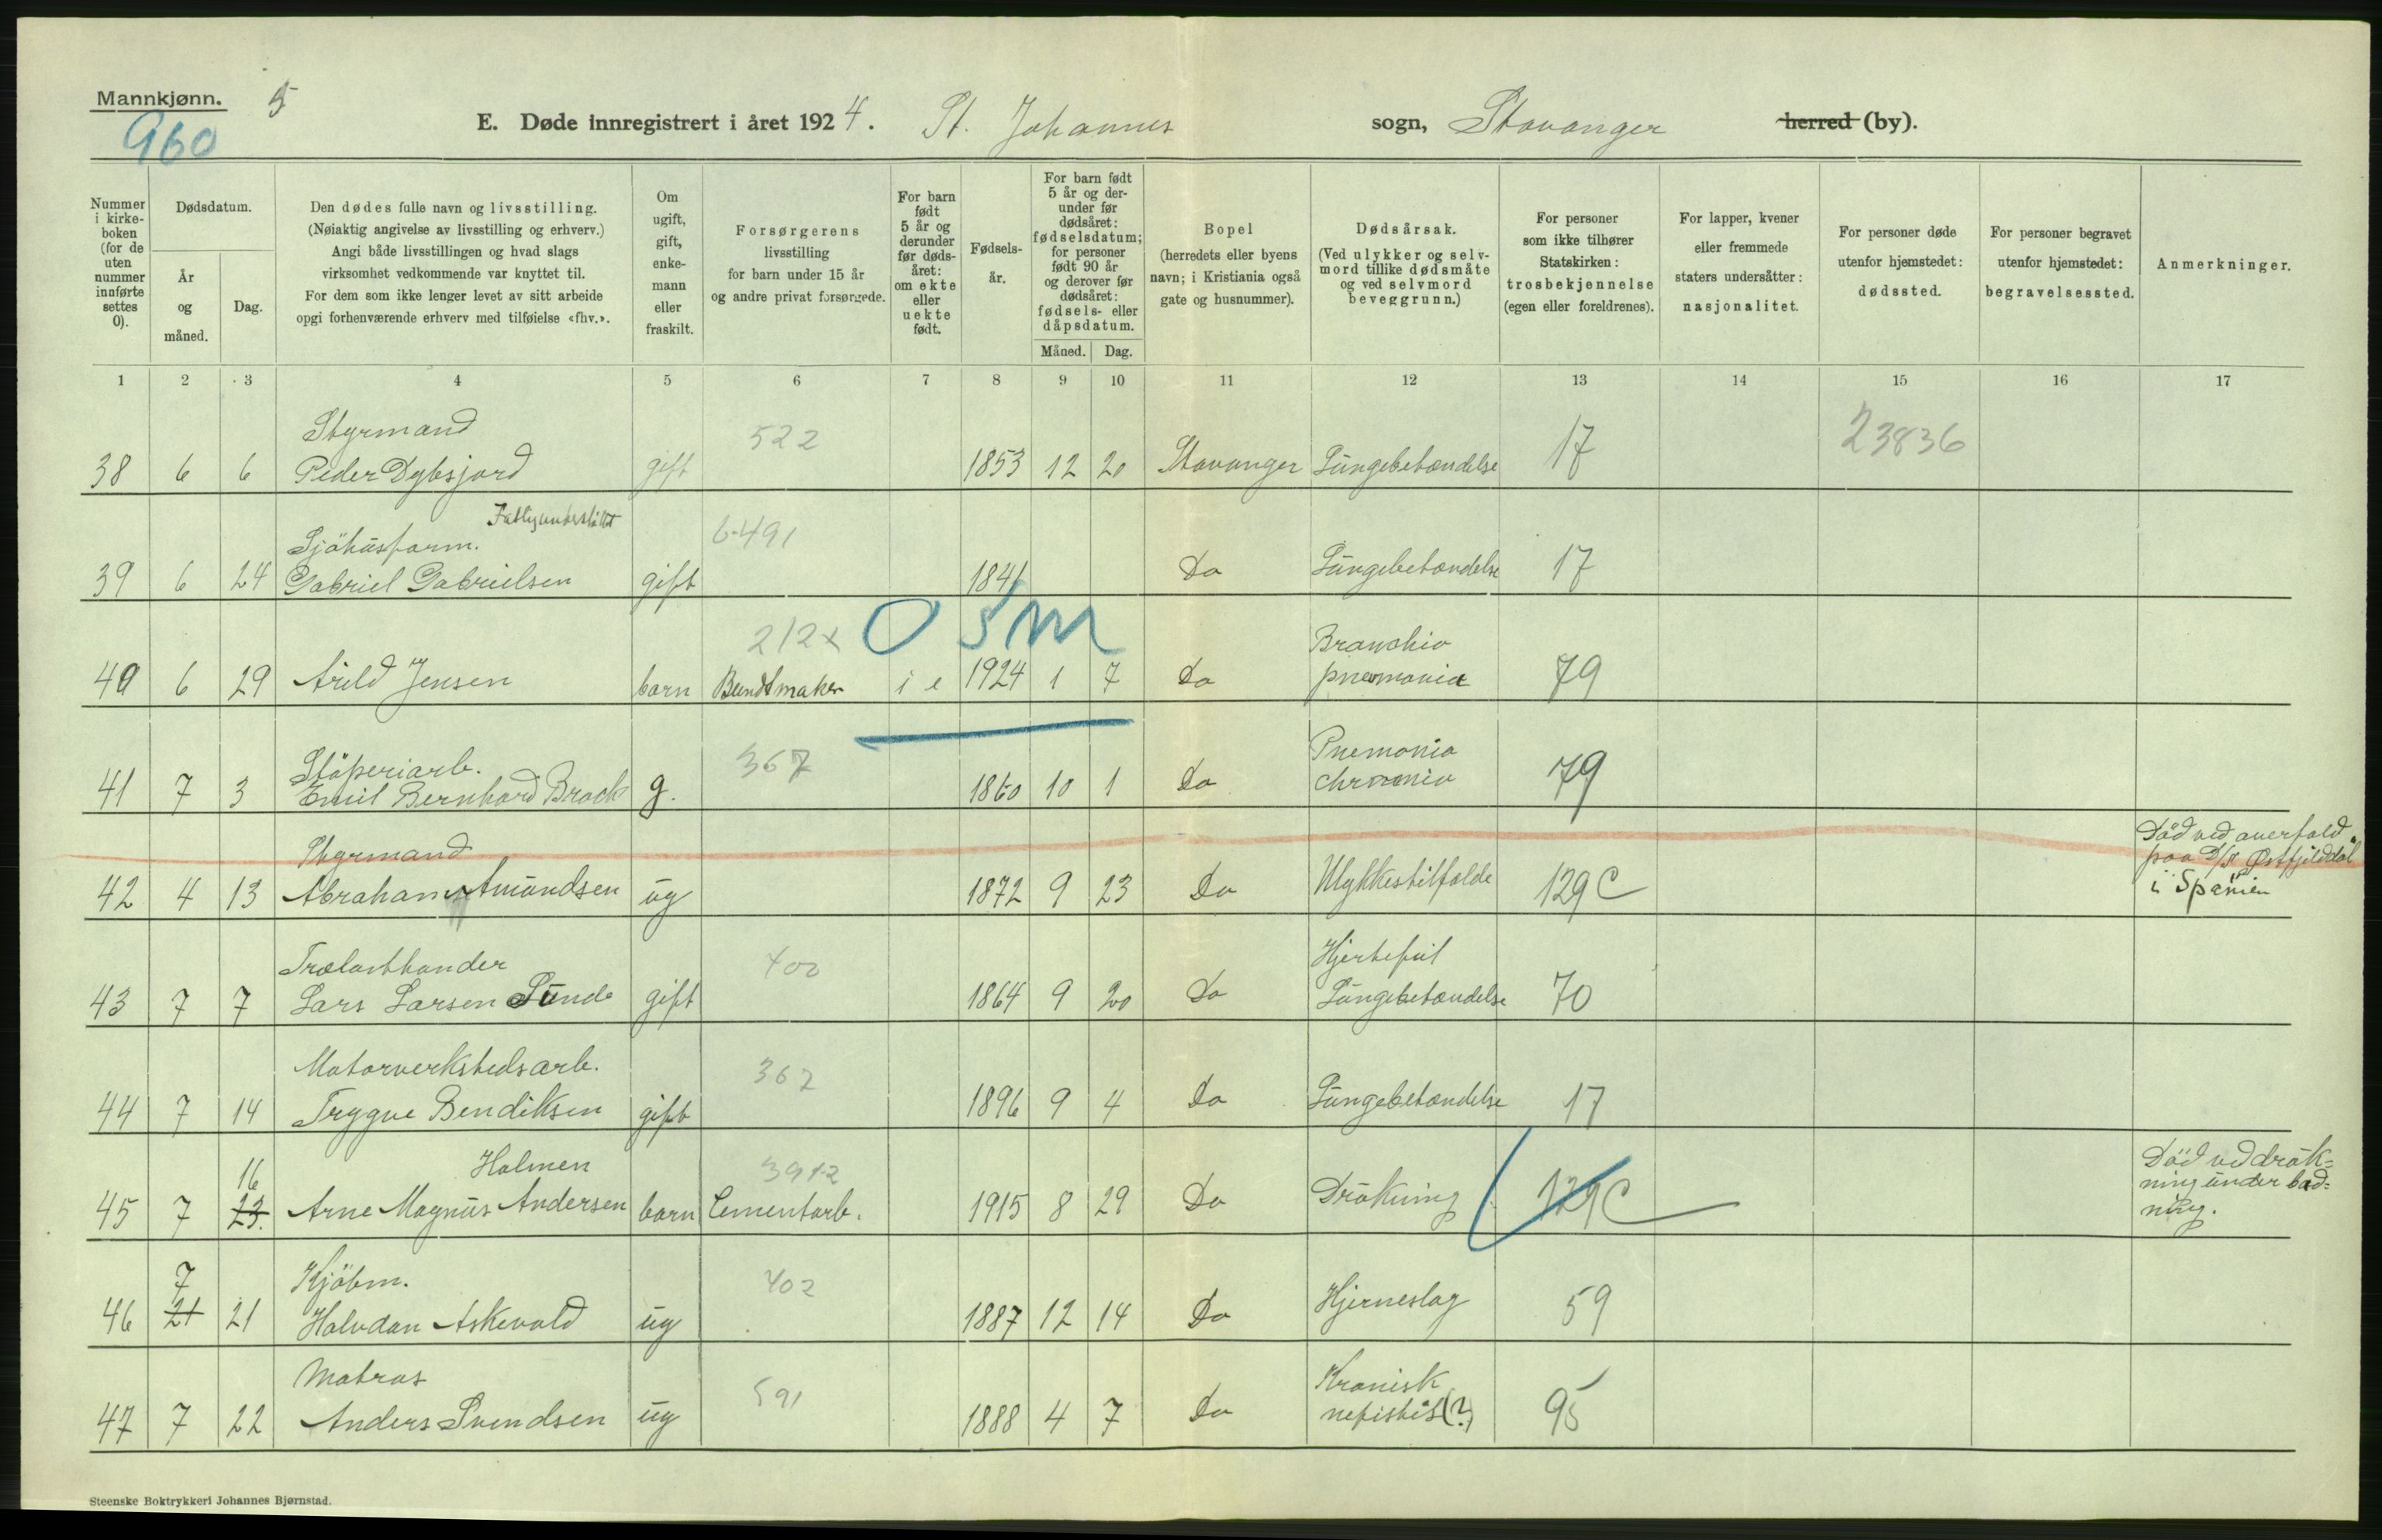 Mannkjønn.
5
960
E. Døde innregistrert i året 1924. St. Johannes sogn, Stavanger herred (by).
Nummer i kirke-boken (for de uten nummer innførte settes 0).
Dødsdatum.
År og måned.
Dag.
Den dødes fulle navn og livsstilling.
(Nøiaktig angivelse av livsstilling og erhverv.)
Angi både livsstillingen og hvad slags
virksomhet vedkommende var knyttet til.
For dem som ikke lenger levet av sitt arbeide
opgi forhenværende erhverv med tilføielse «fhv.».
Om ugift, gift, enke-mann eller fraskilt.
Forsørgerens
livsstilling
for barn under 15 år
og andre privat forsørgede.
For barn født 5 år og derunder før døds-året: om ekte eller uekte født.
Fødsels-år.
For barn født 5 år og der-under før dødsåret: fødselsdatum; for personer født 90 år og derover før dødsåret: fødsels- eller dåpsdatum.
Måned.
Dag.
Bopel
(herredets eller byens
navn; i Kristiania også
gate og husnummer).
Dødsårsak.
(Ved ulykker og selv-
mord tillike dødsmåte
og ved selvmord
beveggrunn.)
For personer
som ikke tilhører
Statskirken:
trosbekjennelse
(egen eller foreldrenes).
For lapper, kvener
eller fremmede
staters undersåtter:
nasjonalitet.
For personer døde
utenfor hjemstedet:
dødssted.
For personer begravet
utenfor hjemstedet:
begravelsessted.
Anmerkninger.
1 2 3 4 5 6 7 8 9 10 11 12 13 14 15 16 17
Styrmand 522 23836
38 6 6 Peder Dybsjord gift 1853 12 20 Stavanger Lungebetændelse 17
Fattigunderstöttet
Sjöhusform. 6-491
39 6 24 Gabriel Gabrielsen gift 1841 Do Lungebetændelse 17
212x 0 5m Bronchio
40 6 29 Arild Jensen barn Bundtmaker i e 1924 1 7 Do pnemonia 79
Stöperiarb. 367 Pnemonia
41 7 3 Emil Bernhard Brock g. 1860 10 1 Do chronnia 79
Styrmand
42 4 13 Abraham Amundsen ug 1872 9 23 Do Ulykkestilfælde 129 C
Död ved overfald
paa D/S Østfjelddal
i Spanien
Trælasthander 400 Hjertefeil
43 7 7 Lars Larsen Lunde gift 1864 9 20 Do Lungebetændelse 70
Motorverkstedsarb. 367
44 7 14 Trygve Bendiksen gift 1896 9 4 Do Lungebetændelse 17
16 Holmen 3912
45 7 23. Arne Magnus Andersen barn Cementarb. 1915 8 29 Do Drukning 129 C
Död ved druk=
ning under bad=
ning.
7 Kjöbm. 402
46 21 21 Halvdan Askevold ug 1887 12 14 Do Hjerneslag 59
Matros 591 Kronisk
47 7 22 Anders Svendsen ug 1888 4 7 Do nefistis (?) 95
Steenske Boktrykkeri Johannes Bjørnstad.